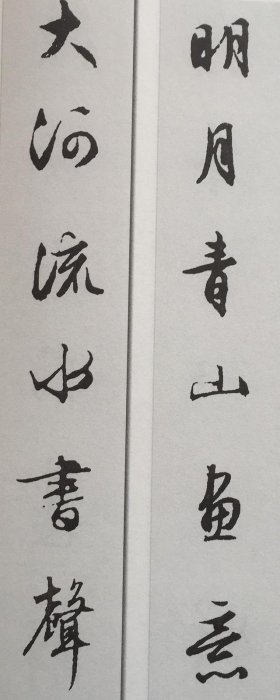 明月青山畫意
大河流水書聲